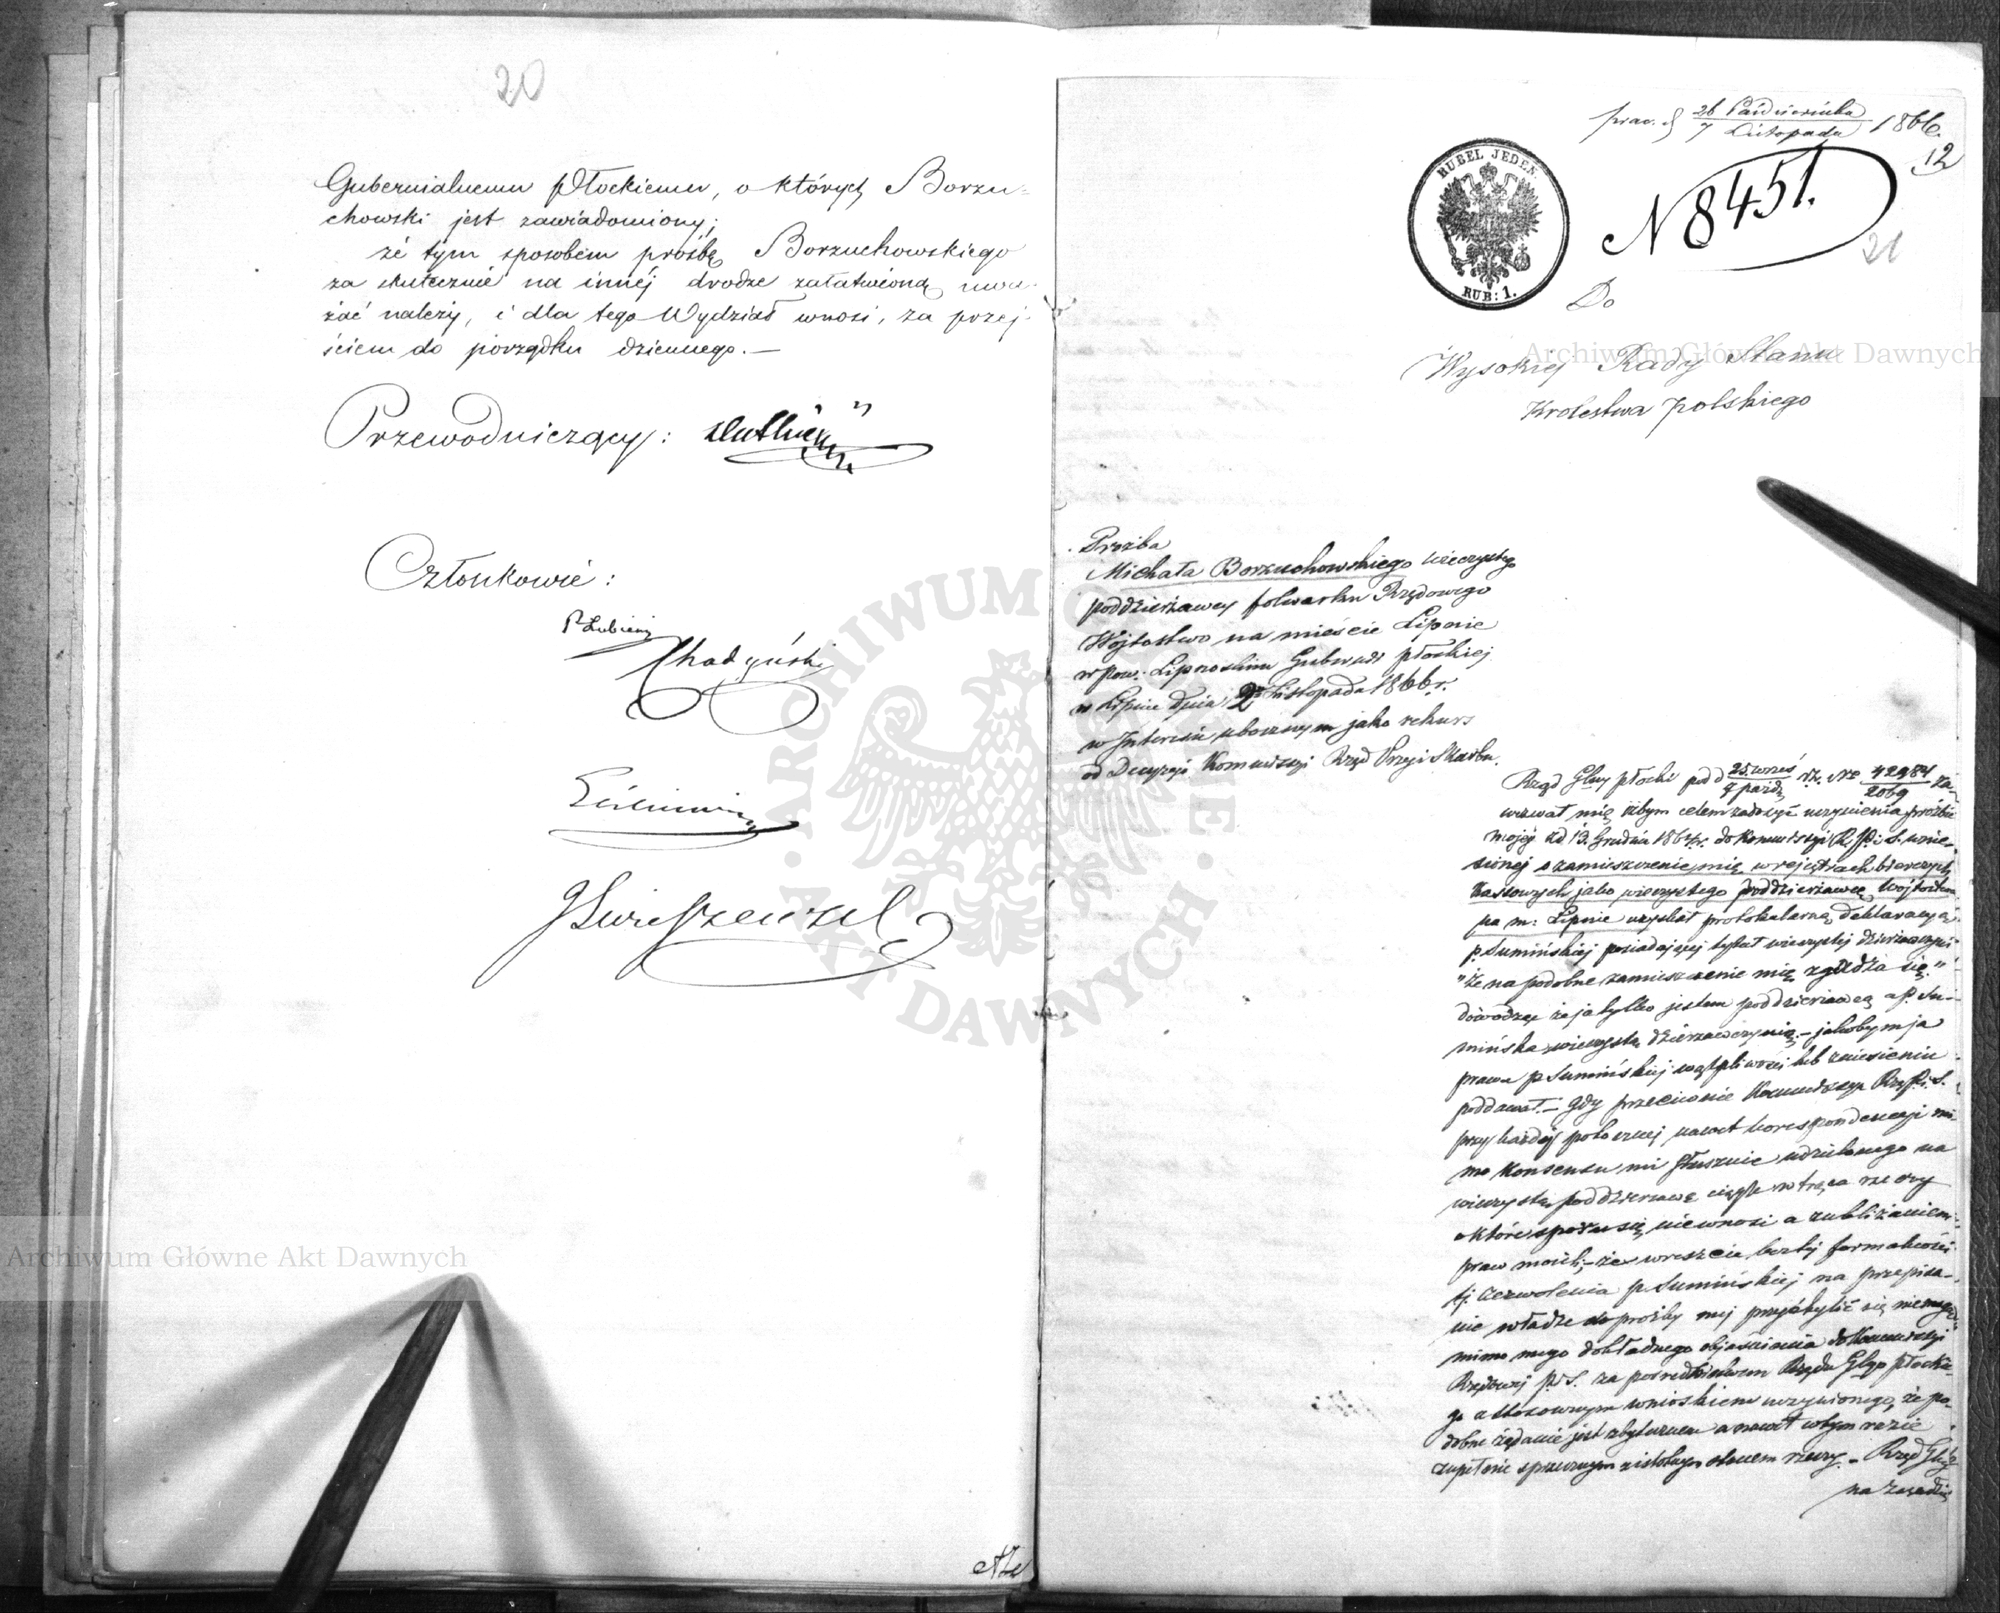 20
Gubernialnemu Płockiemu, o których Borzu-
chowski jest zawiadomiony;
że tym sposobem prośbę Borzuchowskiego
za skutecznie na innéj drodze załatwioną uwa-
żać należy, i dla tego Wydział wnosi, za przej-
ściem do porządku dziennego. —
Przewodniczący:
Członkowie:
P Łubień
Chądzyński
26 Października
7 Listopada 1866.
12
RUBEL JEDEN.
RUB: 1.
N 8451.
21
Do
Wysokiej Rady Stanu
Królestwa Polskiego
Proźba
Michała Borzuchowskiego wieczystego
poddzierżawcy folwarku Rządowego
Wójtostwo na mieście Lipnie
w Pow. Lipnoskim Gubernii Płockiej
w Lipnie dnia 2 Listopada 1866 r.
w Interesie ubocznym jako rekurs
od Decyzji Kommissyi Rząd Przyi Skarbu.
Rząd Glny Płocki pod d 25 wrześ / 7 paźdz rz. Nro 42984 / 2069 za-
wezwał mię żebym celem zadosyć uczynienia prośbie
mojej zd 13. Grudnia 1864 r. do Kommissyi R. P. i S. wnie-
sionej o zamieszczenie mię w rejestrach bierczych
Kassowych jako wieczystego poddzierżawcę Wójtostwa
na m: Lipnie uzyskał protokularną deklaracyą
p. Sumińskiej posiadającej tytuł wieczystej dzierżawczyni
"Że na podobne zamieszczenie mię zgadza się."
dowodząc że ja tylko jestem poddzierżawcą a P. Su-
mińska wieczystą dzierżawczynią. — jakobym ja
prawa p. Sumińskiej wątpliwości lub zniesieniu
poddawał. — Gdy przeciwnie Kommissya Rz. P. i S.
przy każdej potocznej nawet korespondencyi mi-
mo Konsensu mi słusznie udzielonego na
wieczystą poddzierżawę ciągle wtrąca rzeczy
o które sporu się nie wnosi a zubliżaniem
praw moich; — że wreszcie bez tej formalności
tj. zezwolenia p. Sumińskiej na przepisa-
nie władze do proźby mej przychylić się nie mogą
mimo mego dokładnego objaśnienia do Kommissyi
Rządowej P. i S. za pośrednictwem Rządu Glgo Płockie-
go a stosownym wnioskiem uczynionego, że po-
dobne żądanie jest zbytecznem a nawet w tym razie
zupełnie sprzecznym z istotnym stanem rzeczy. — Rząd Glny
na zasadzie
Archiwum Główne Akt Dawnych
Archiwum Główne Akt Dawnych
ARCHIWUM GŁÓWNE AKT DAWNYCH